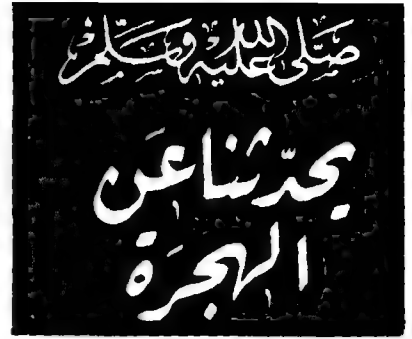 صَلَّى اللَّهُ عَلَيْهِ وَسَلَّم
يحدّثنا عَن
الهجرَة